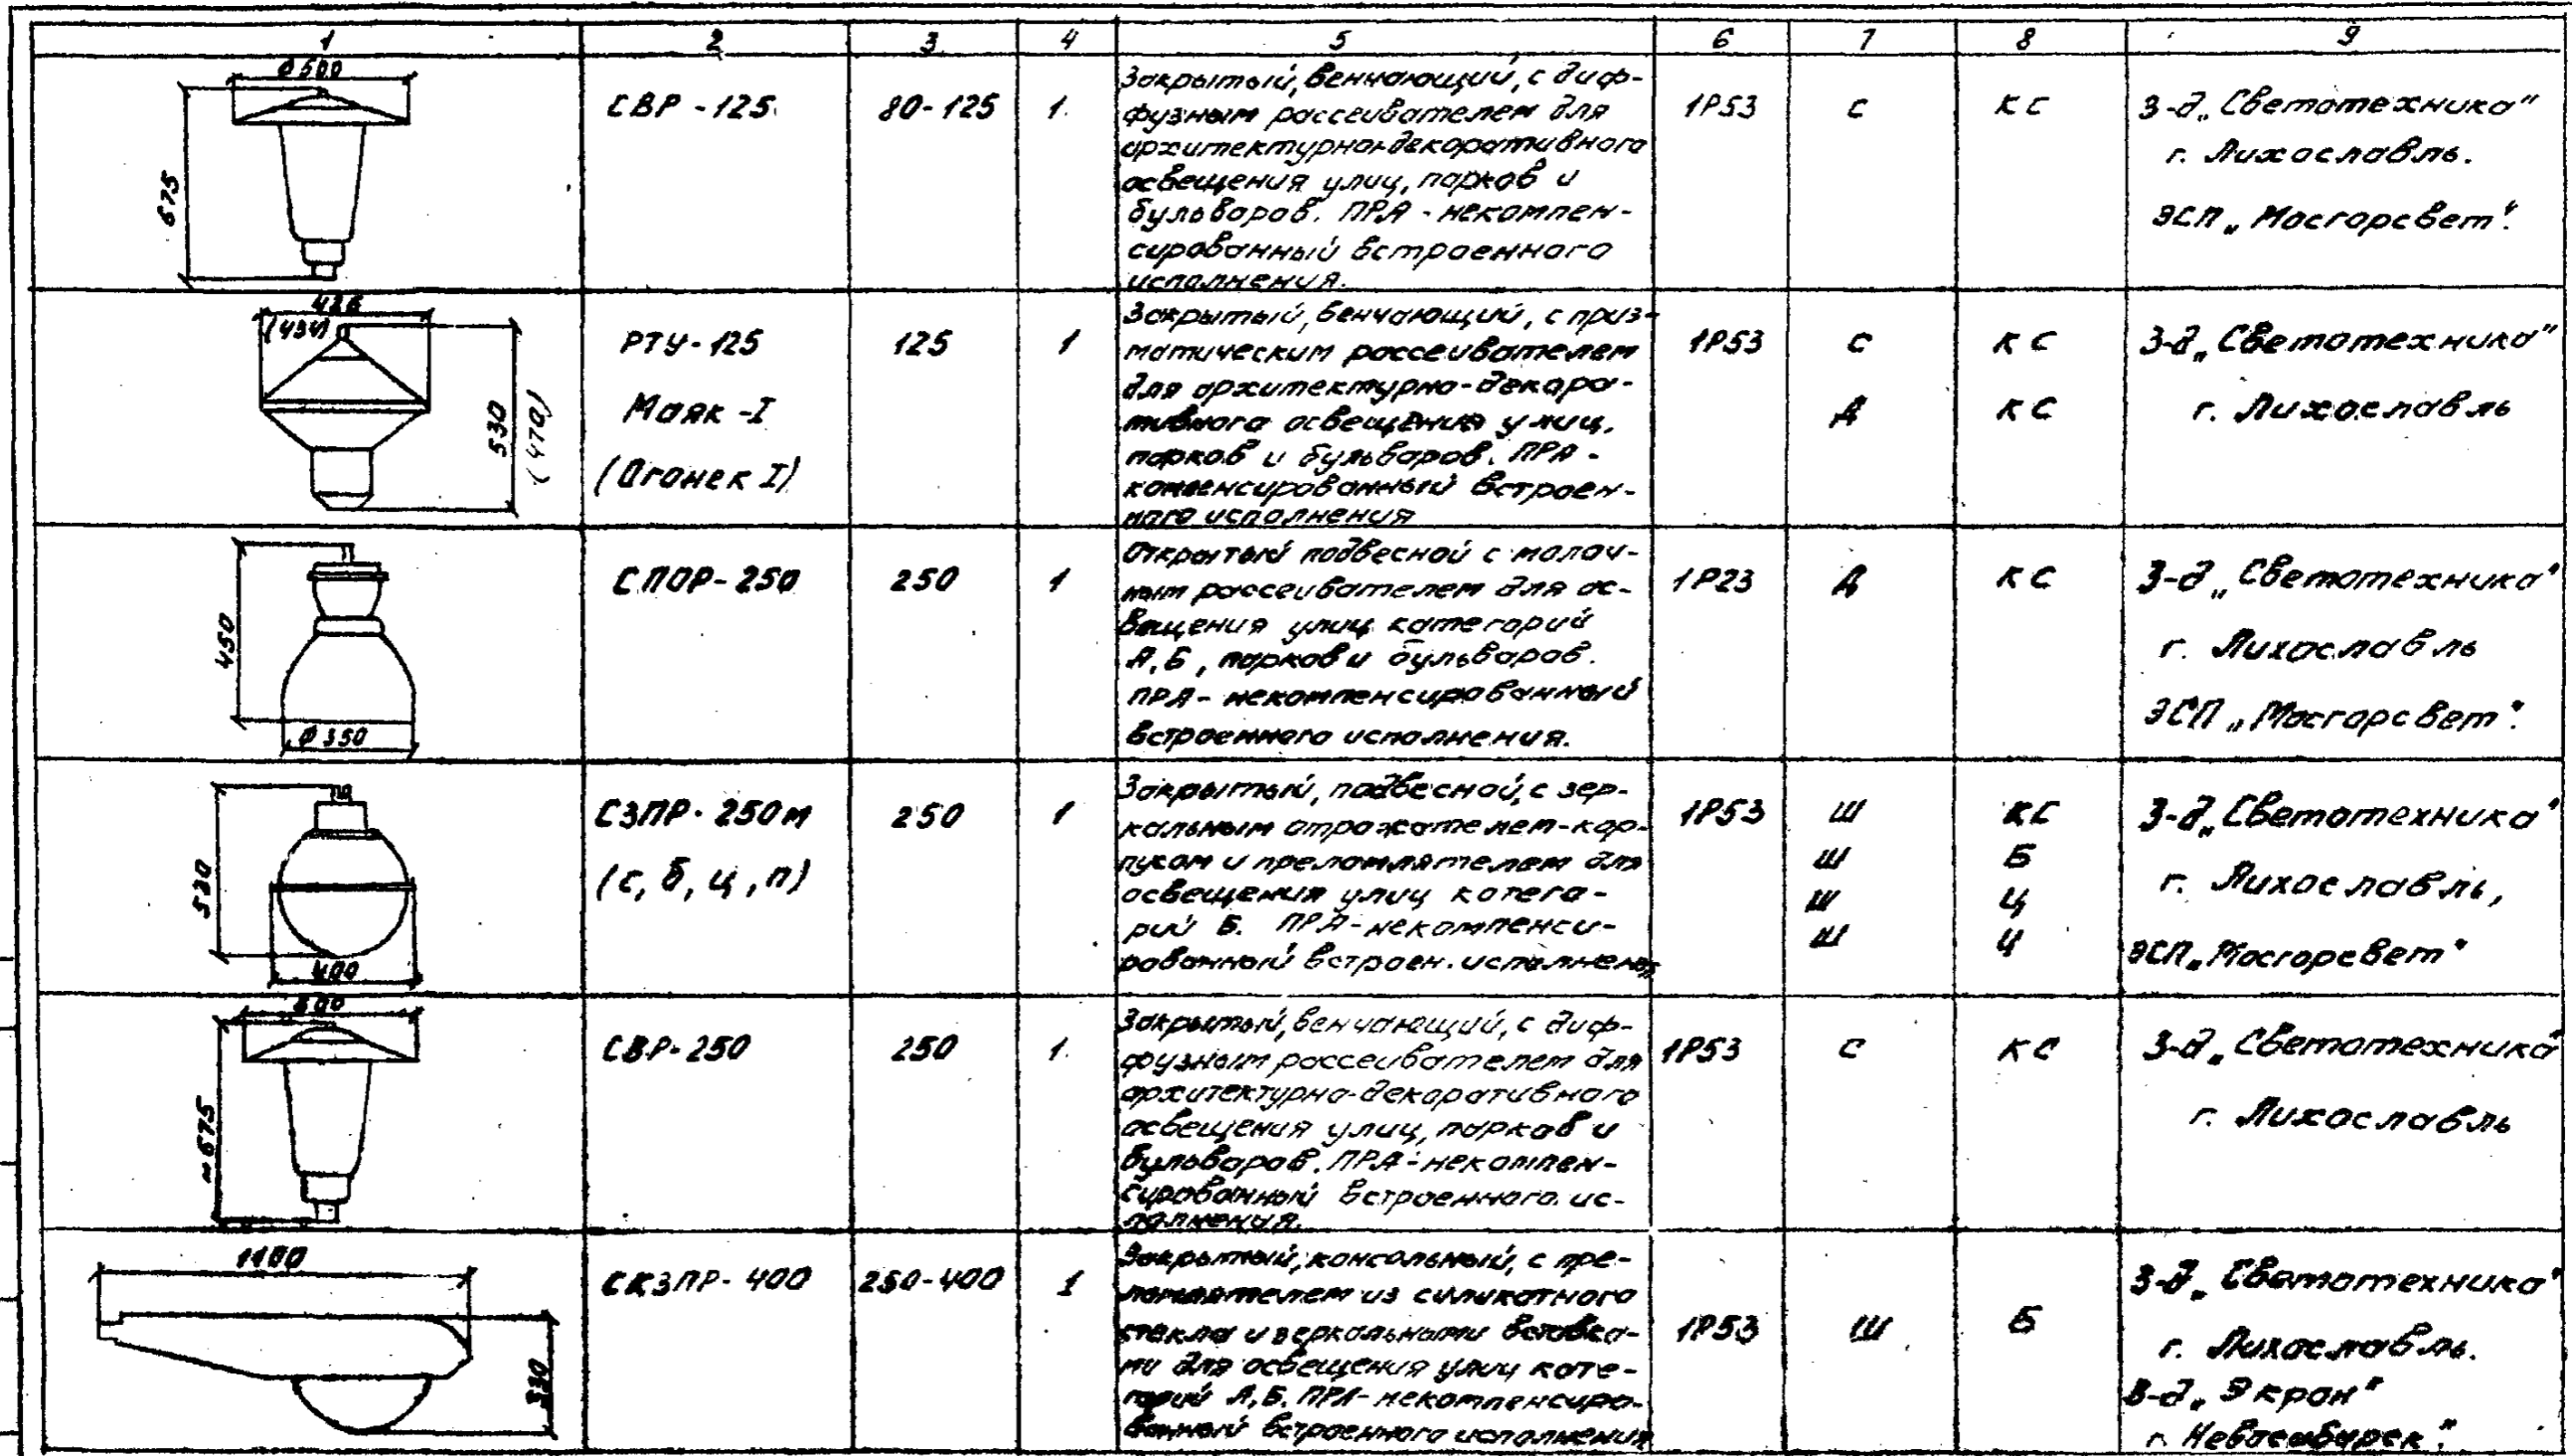 1 2 3 4 5 6 7 8 9
ø500
675
СВР-125
80-125
1.
Закрытый, венчающий, с диф-
фузным рассеивателем для
архитектурно-декоративного
освещения улиц, парков и
бульваров. ПРА - некомпен-
сированный встроенного
исполнения.
1Р53
С
КС
З-д „Светотехника"
г. Лихославль.
ЭСП „Мосгорсвет".
426
(434)
530
(470)
РТУ-125
Маяк-I
(Огонек I)
125
1
Закрытый, венчающий, с приз-
матическим рассеивателем
для архитектурно-декора-
тивного освещения улиц,
парков и бульваров. ПРА -
компенсированный встроен-
ного исполнения
1Р53
С
Д
КС
КС
З-д „Светотехника"
г. Лихославль
450
ø350
СПОР-250
250
1
Открытый подвесной с молоч-
ным рассеивателем для ос-
вещения улиц категорий
А, Б, парков и бульваров.
ПРА - некомпенсированный
встроенного исполнения.
1Р23
Д
КС
З-д „Светотехника"
г. Лихославль
ЭСП „Мосгорсвет".
530
400
СЗПР-250м
(с, б, ц, п)
250
1
Закрытый, подвесной, с зер-
кальным отражателем-кор-
пусом и преломлятелем для
освещения улиц катего-
рий Б. ПРА - некомпенси-
рованный встроен. исполнения
1Р53
Ш
Ш
Ш
Ш
КС
Б
Ц
Ц
З-д „Светотехника"
г. Лихославль,
ЭСП „Мосгорсвет"
600
≈675
СВР-250
250
1.
Закрытый, венчающий, с диф-
фузным рассеивателем для
архитектурно-декоративного
освещения улиц, парков и
бульваров. ПРА - некомпен-
сированный встроенного ис-
полнения.
1Р53
С
КС
З-д „Светотехника"
г. Лихославль
1100
330
СКЗПР-400
250-400
1
Закрытый, консольный, с пре-
ломлятелем из силикатного
стекла и зеркальными вставка-
ми для освещения улиц кате-
горий А, Б. ПРА - некомпенсиро-
ванный встроенного исполнения
1Р53
Ш
Б
З-д „Светотехника"
г. Лихославль.
З-д „Экран"
г. Новосибирск".